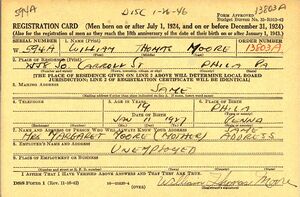 594A
DISC 1-26-46
13803A
REGISTRATION CARD (Men born on or after July 1, 1924, and on or before December 31, 1924)
(Also for the registration of men as they reach the 18th anniversary of the date of their birth on or after January 1, 1943.)
SERIAL NUMBER 1. NAME (Print) ORDER NUMBER
W 594A WILLIAM THOMAS MOORE 13803A
2. PLACE OF RESIDENCE (Print)
SO. CARROLL ST. PHILA PA
[THE PLACE OF RESIDENCE GIVEN ON LINE 2 ABOVE WILL DETERMINE LOCAL BOARD
JURISDICTION; LINE 2 OF REGISTRATION CERTIFICATE WILL BE IDENTICAL]
3. MAILING ADDRESS
SAME
4. TELEPHONE 5. AGE IN YEARS 6. PLACE OF BIRTH
19 PHILA
DATE OF BIRTH
JAN 11 1927 PENNA
7. NAME AND ADDRESS OF PERSON WHO WILL ALWAYS KNOW YOUR ADDRESS
MRS MARGARET MOORE (MOTHER) SAME ADDRESS
8. EMPLOYER'S NAME AND ADDRESS
UNEMPLOYED
9. PLACE OF EMPLOYMENT OR BUSINESS
I AFFIRM THAT I HAVE VERIFIED ABOVE ANSWERS AND THAT THEY ARE TRUE.
DSS Form 1
(OVER)
William Thomas Moore